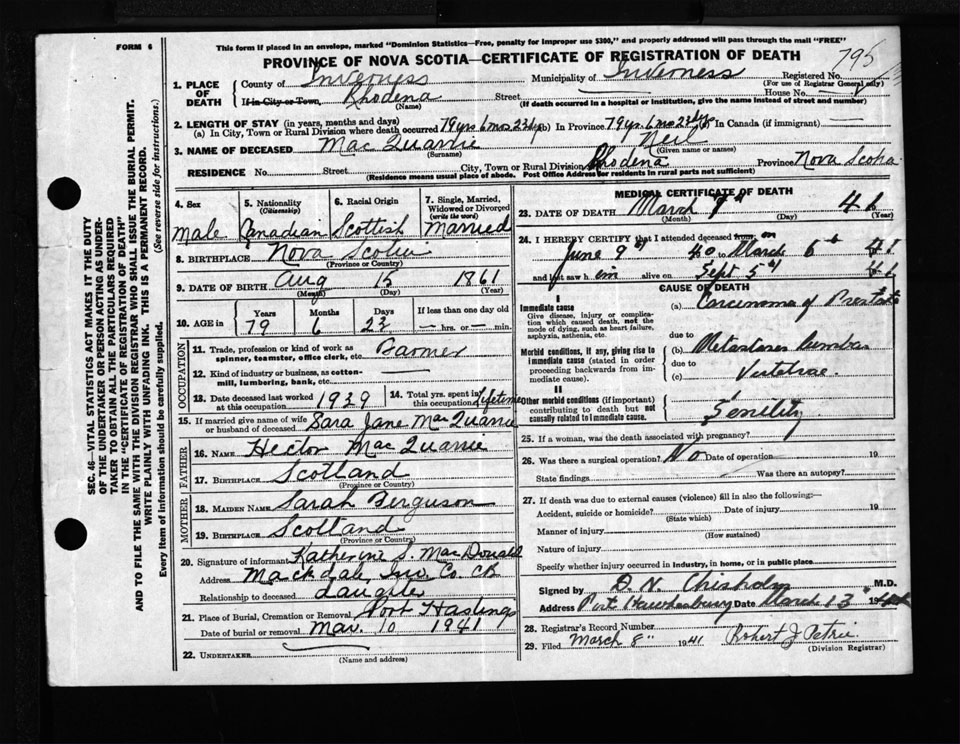 FORM 6
This form if placed in an envelope, marked "Dominion Statistics—Free, penalty for improper use $300," and properly addressed will pass through the mail "FREE"
PROVINCE OF NOVA SCOTIA—CERTIFICATE OF REGISTRATION OF DEATH
795
1. PLACE OF DEATH
County of Inverness Municipality of Inverness Registered No.
(For use of Registrar General only)
If in City or Town, Rhodena Street House No.
(Name) (If death occurred in a hospital or institution, give the name instead of street and number)
2. LENGTH OF STAY (in years, months and days)
(a) In City, Town or Rural Division where death occurred 79 yrs 6 mo 23 dys (b) In Province 79 yrs 6 mo 23 dys (c) In Canada (if immigrant)
3. NAME OF DECEASED Mac Quarrie Neil
(Surname) (Given name or names)
RESIDENCE No. Street City, Town or Rural Division Rhodena Province Nova Scotia
(Residence means usual place of abode. Post Office Address for residents in rural parts not sufficient)
4. Sex
Male
5. Nationality (Citizenship)
Canadian
6. Racial Origin
Scottish
7. Single, Married, Widowed or Divorced (write the word)
Married
8. BIRTHPLACE Nova Scotia
(Province or Country)
9. DATE OF BIRTH Aug 15 1861
(Month) (Day) (Year)
10. AGE in
Years Months Days If less than one day old
79 6 23 — hrs. or — min.
OCCUPATION
11. Trade, profession or kind of work as spinner, teamster, office clerk, etc. Farmer
12. Kind of industry or business, as cotton-mill, lumbering, bank, etc.
13. Date deceased last worked at this occupation 1939
14. Total yrs. spent in this occupation Lifetime
15. If married give name of wife or husband of deceased Sara Jane MacQuarrie
FATHER
16. NAME Hector Mac Quarrie
17. BIRTHPLACE Scotland
(Province or Country)
MOTHER
18. MAIDEN NAME Sarah Ferguson
19. BIRTHPLACE Scotland
(Province or Country)
20. Signature of informant Katherine S. MacDonald
Address Mackdale, Inv. Co. CB
Relationship to deceased daughter
21. Place of Burial, Cremation or Removal Port Hastings
Date of burial or removal Mar. 10 1941
22. UNDERTAKER
(Name and address)
MEDICAL CERTIFICATE OF DEATH
23. DATE OF DEATH March 41
(Month) (Day) (Year)
24. I HEREBY CERTIFY that I attended deceased from on
June 9th 40 to March 6th 41
and last saw him alive on Sept 5th
CAUSE OF DEATH
I
Immediate cause
Give disease, injury or complication which caused death, not the mode of dying, such as heart failure, asphyxia, asthenia, etc.
(a) Carcinoma of Prostate
due to
Morbid conditions, if any, giving rise to immediate cause (stated in order proceeding backwards from immediate cause).
(b) Metastases lumbar
due to
(c) Vertebrae.
II
Other morbid conditions (if important) contributing to death but not causally related to immediate cause.
Senility
25. If a woman, was the death associated with pregnancy?
26. Was there a surgical operation? No Date of operation 19
State findings Was there an autopsy?
27. If death was due to external causes (violence) fill in also the following:—
Accident, suicide or homicide? Date of injury 19
(State which)
Manner of injury
(How sustained)
Nature of injury
Specify whether injury occurred in industry, in home, or in public place
Signed by D. N. Chisholm M.D.
Address Port Hawkesbury Date March 13 19
28. Registrar's Record Number
29. Filed March 8" 1941 Robert J Petrie
(Division Registrar)
SEC. 46—VITAL STATISTICS ACT MAKES IT THE DUTY
OF THE UNDERTAKER OR PERSON ACTING AS UNDER-
TAKER TO OBTAIN ALL THE PARTICULARS REQUIRED
IN THE "CERTIFICATE OF REGISTRATION OF DEATH"
AND TO FILE THE SAME WITH THE DIVISION REGISTRAR WHO SHALL ISSUE THE BURIAL PERMIT.
WRITE PLAINLY WITH UNFADING INK. THIS IS A PERMANENT RECORD.
Every item of information should be carefully supplied. (See reverse side for instructions).